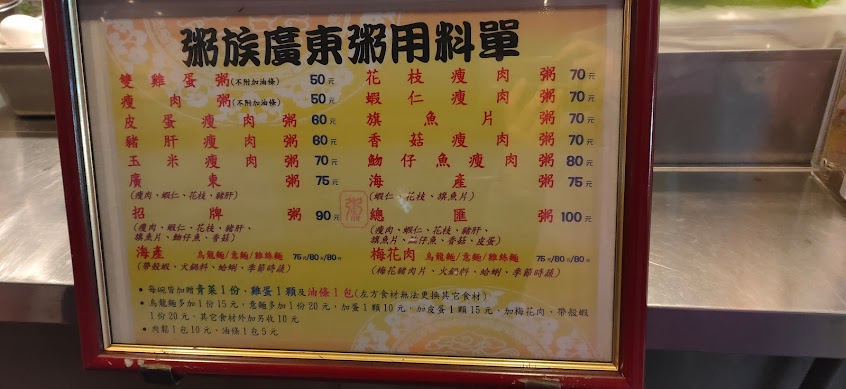 粥族廣東粥用料單
雙雞蛋粥(不附加油條) 50元
瘦肉粥(不附加油條) 50元
皮蛋瘦肉粥 60元
豬肝瘦肉粥 60元
玉米瘦肉粥 70元
廣東粥 75元
(瘦肉、蝦仁、花枝、豬肝)
招牌粥 90元
(瘦肉、蝦仁、花枝、豬肝、
旗魚片、魩仔魚、香菇)
海產 烏龍麵/意麵/雞絲麵 75元/80元/80元
(帶殼蝦、火鍋料、蛤蜊、季節時蔬)
花枝瘦肉粥 70元
蝦仁瘦肉粥 70元
旗魚片粥 70元
香菇瘦肉粥 70元
魩仔魚瘦肉粥 80元
海產粥 75元
(蝦仁、花枝、旗魚片)
粥
總匯粥 100元
(瘦肉、蝦仁、花枝、豬肝、
旗魚片、魩仔魚、香菇、皮蛋)
梅花肉 烏龍麵/意麵/雞絲麵 75元/80元/80元
(梅花豬肉片、火鍋料、蛤蜊、季節時蔬)
• 每碗皆加贈青菜1份、雞蛋1顆及油條1包(左方食材無法更換其它食材)
• 烏龍麵多加1份15元，意麵多加1份20元，加蛋1顆10元，加皮蛋1顆15元，加梅花肉、帶殼蝦
1份20元，其它食材外加另收10元
• 肉鬆1包10元，油條1包5元